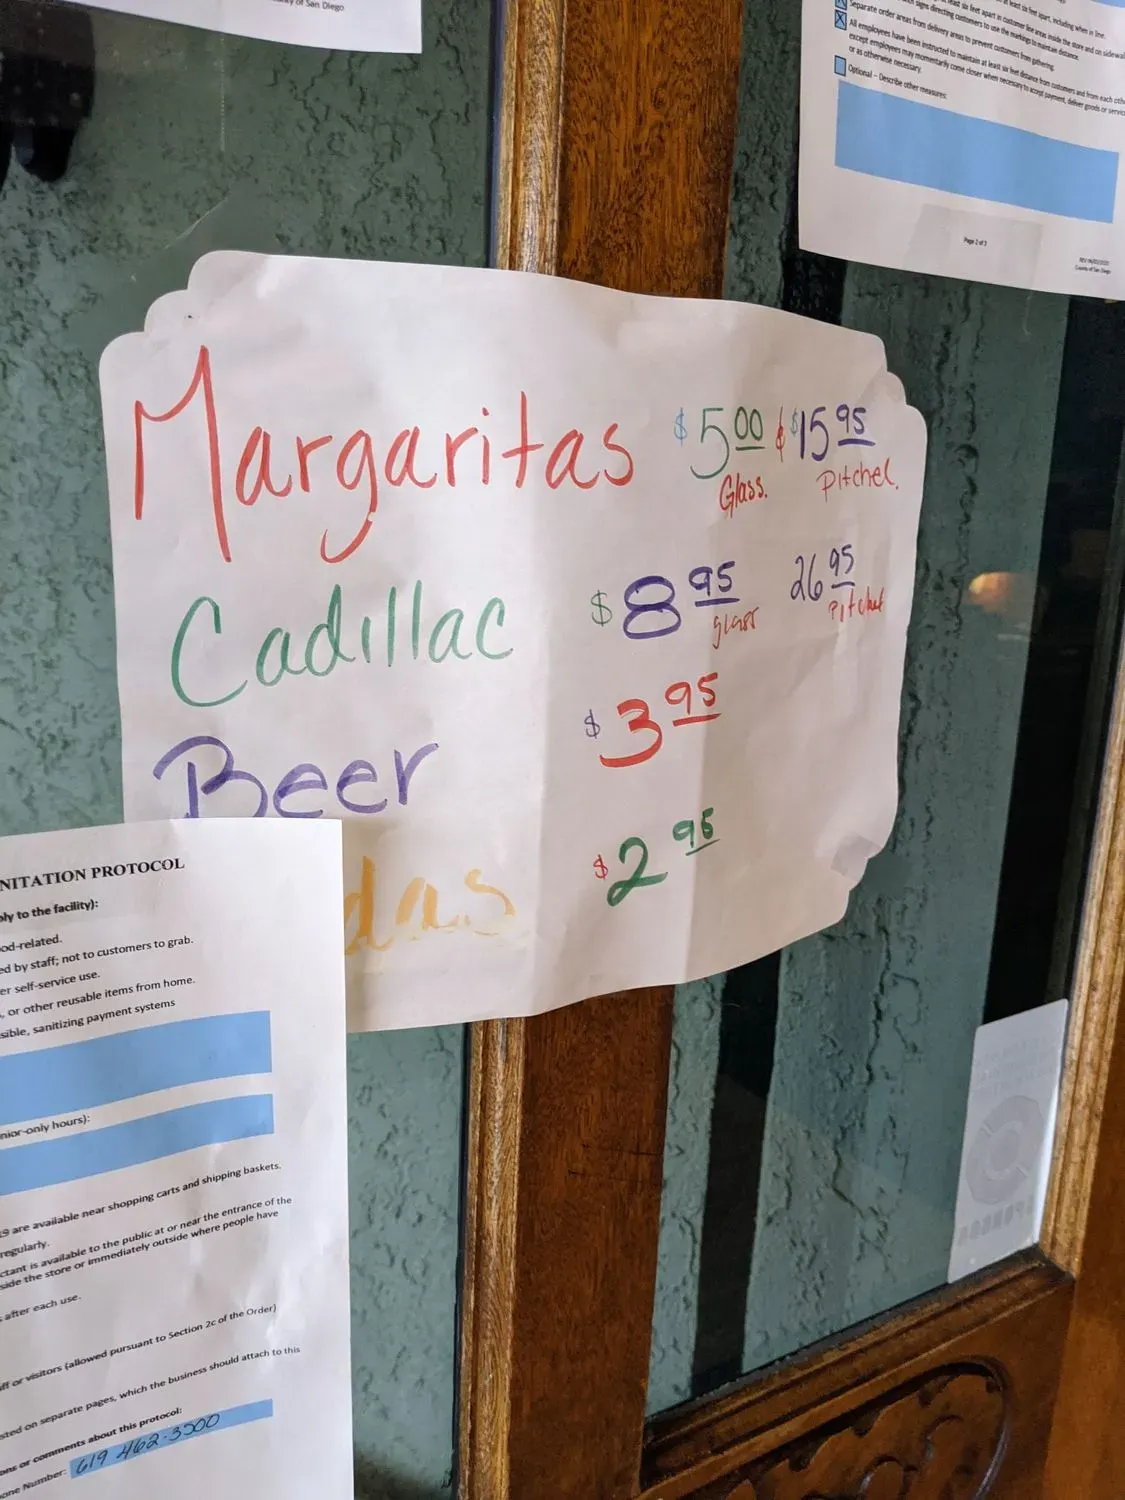 y of San Diego
at least six feet apart in customer line areas inside the store and on sidewal
signs directing customers to use the markings to maintain distance.
Separate order areas from delivery areas to prevent customers from gathering.
All employees have been instructed to maintain at least six feet distance from customers and from each oth
except employees may momentarily come closer when necessary to accept payment, deliver goods or servic
or as otherwise necessary.
Optional – Describe other measures:
Page 2 of 3
County of San Diego
Margaritas $5.00 $15.95
Glass. Pitchel.
Cadillac $8.95 26.95
glass Pitchel
Beer $3.95
das $2.95
NITATION PROTOCOL
ply to the facility):
od-related.
ed by staff; not to customers to grab.
er self-service use.
, or other reusable items from home.
sible, sanitizing payment systems
nior-only hours):
19 are available near shopping carts and shipping baskets.
regularly.
ctant is available to the public at or near the entrance of the
side the store or immediately outside where people have
after each use.
ff or visitors (allowed pursuant to Section 2c of the Order)
sted on separate pages, which the business should attach to this
ons or comments about this protocol:
one Number: 619 462-3500